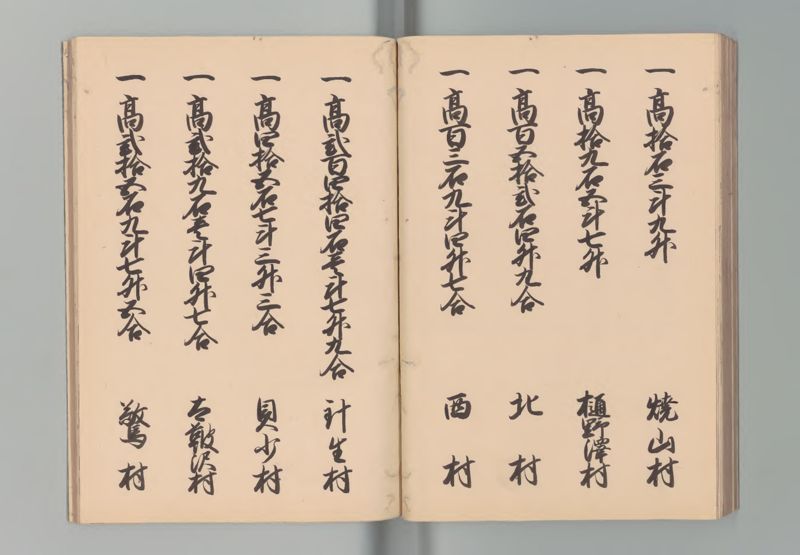 一高拾石三斗九升 焼山村
一高拾九石五斗七升 樋野澤村
一高百五拾弐石四升九合 北村
一高百三石九斗四升七合 西村
一高弐百四拾四石壱斗七升九合 針生村
一高四拾五石七斗三升三合 貝少村
一高弐拾九石壱斗四升七合 沢村
一高弐拾五石九斗七升五合 鷲村